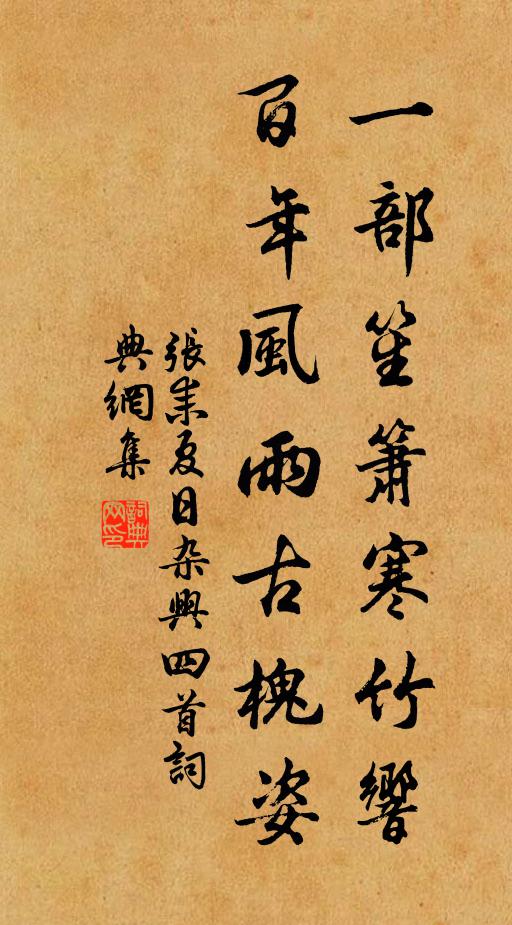 一部笙簫寒竹響
百年風雨古槐姿
張耒夏日杂興四首詞
典網集
詞典网印